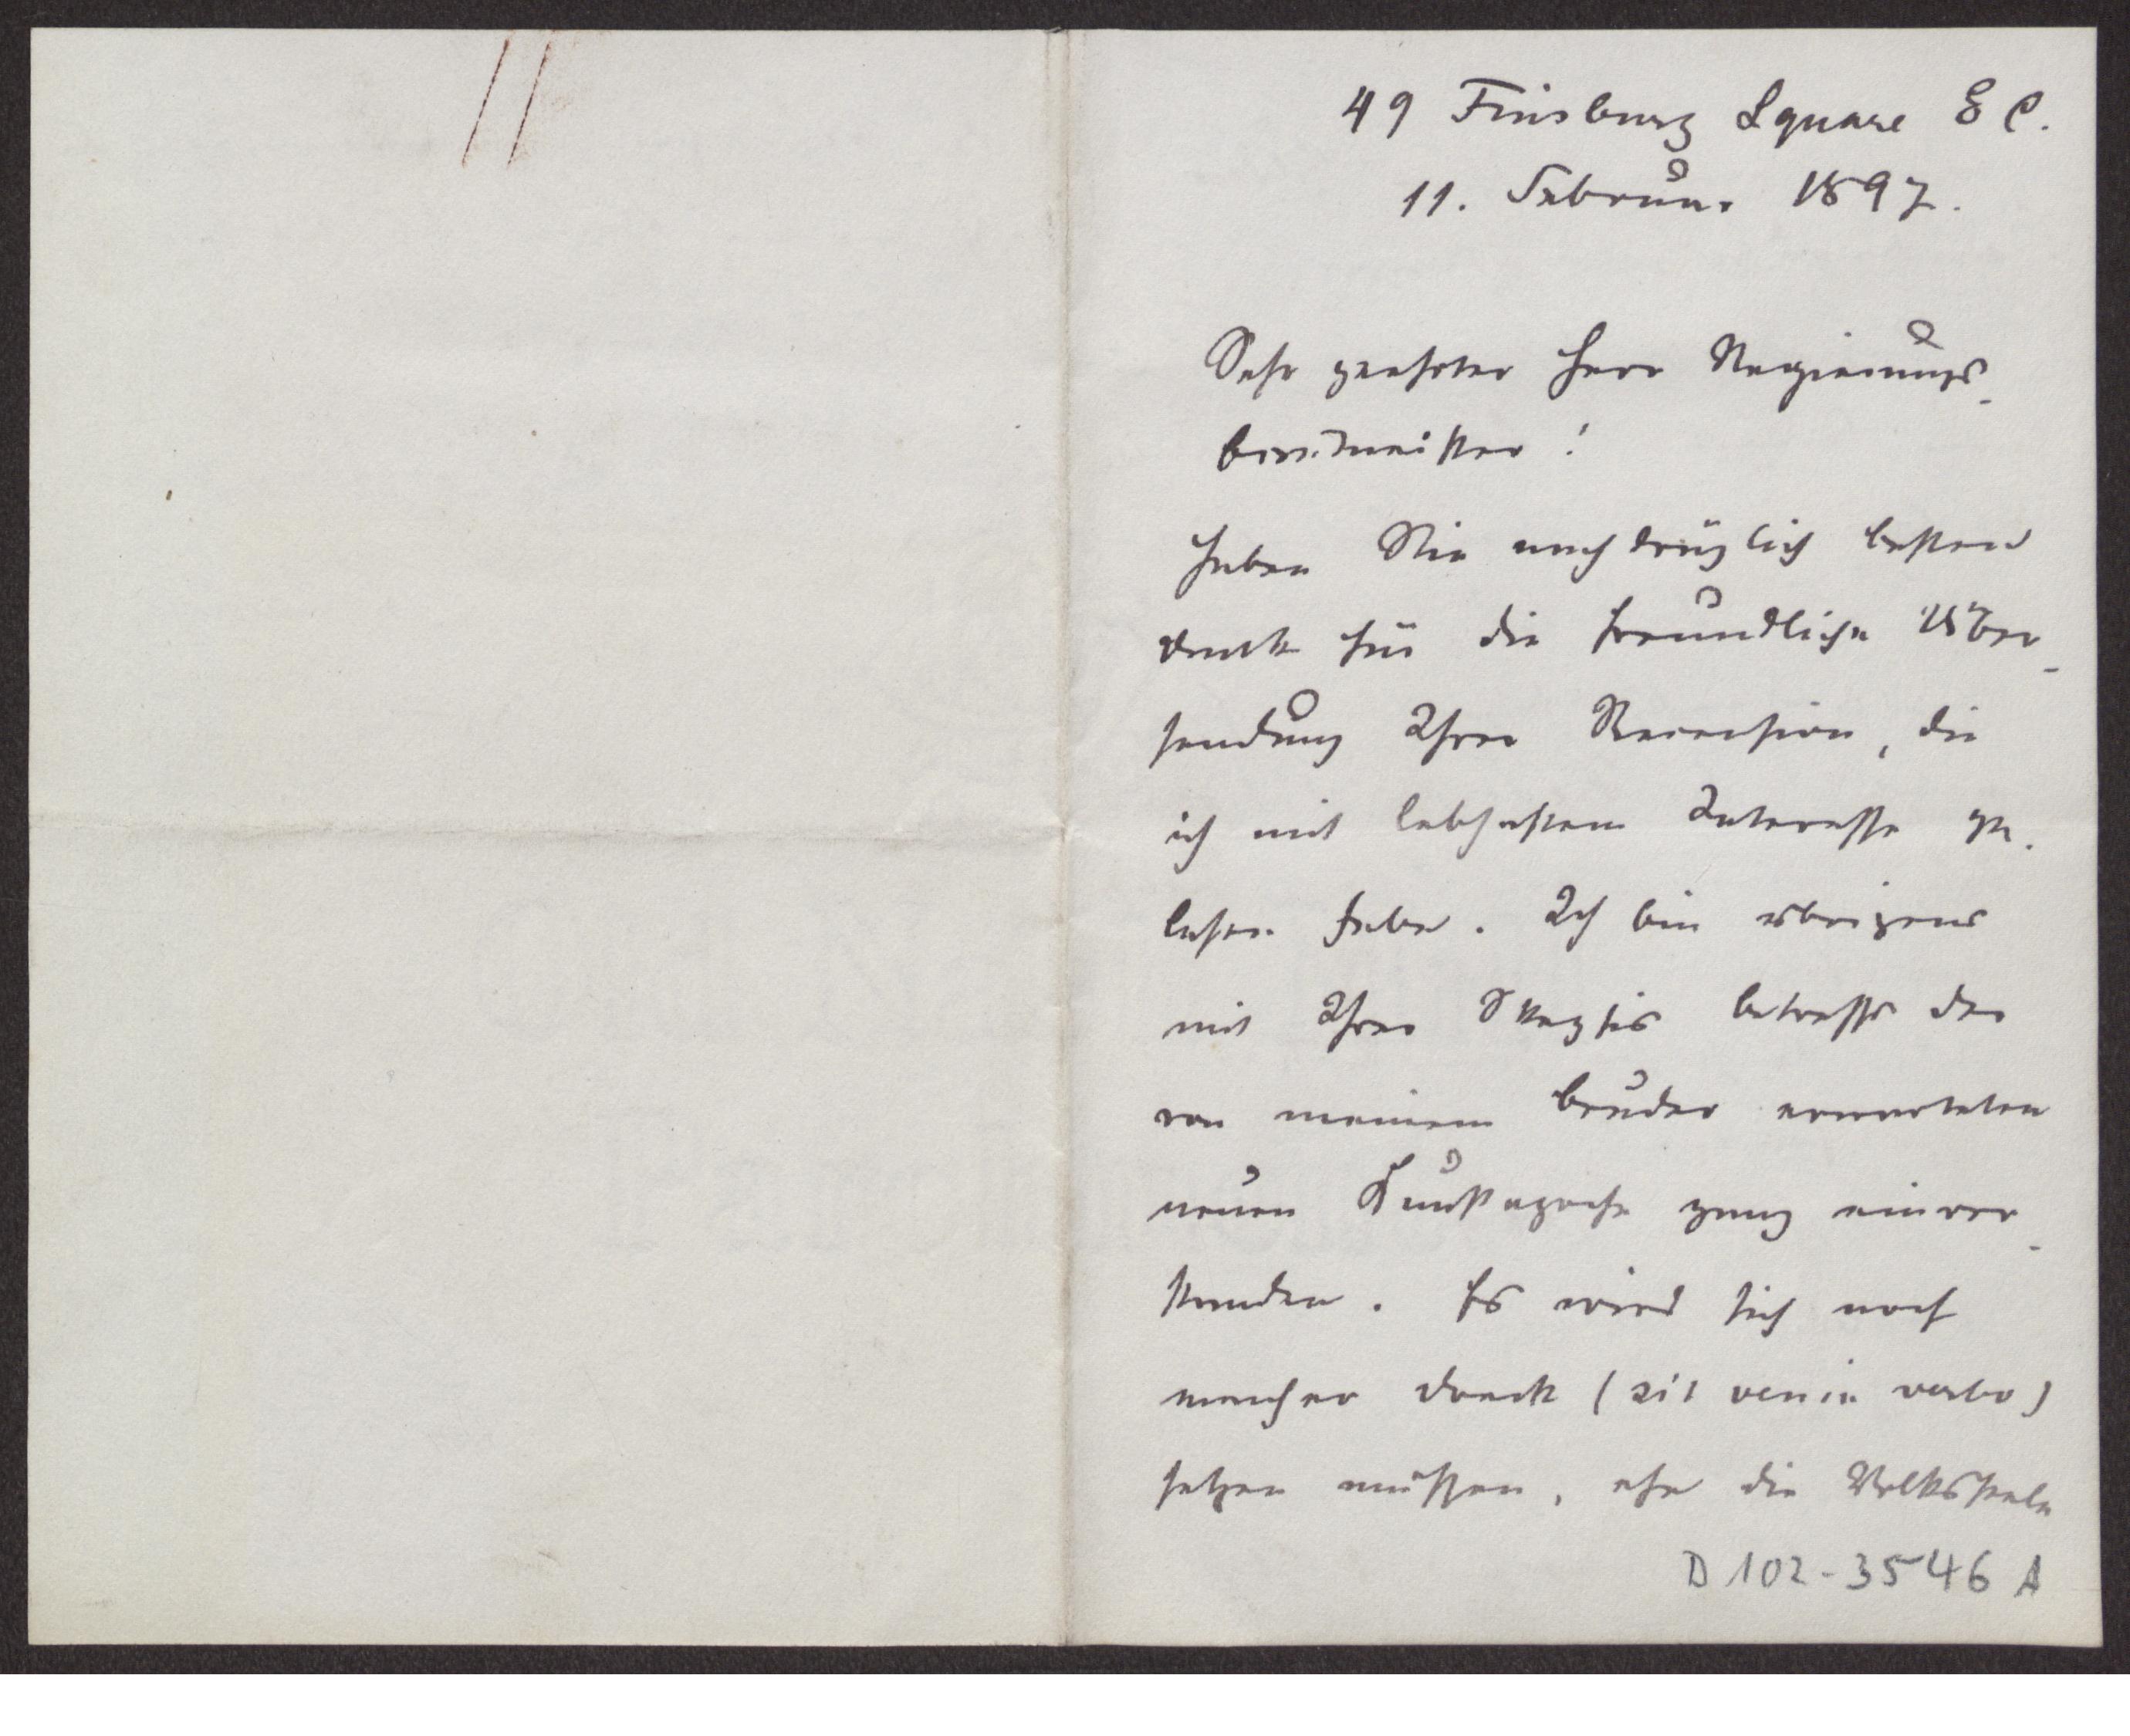 49 Finsbury Square E C.
11. Februar 1897.
Sehr geehrter Herr Regierungs-
baumeister!
Haben Sie nachträglich besten
Dank für die freundliche Über-
sendung Ihrer Recension, die
ich mit lebhaftem Interesse ge-
lesen habe. Ich bin übrigens
mit Ihrer Skepsis betreffs der
von meinem Bruder erwarteten
neuen Kunstepoche ganz einver-
standen. Es wird sich noch
mancher Dreck (sit venia verbo)
setzen müssen, ehe die Volksseele
D 102-3546 A